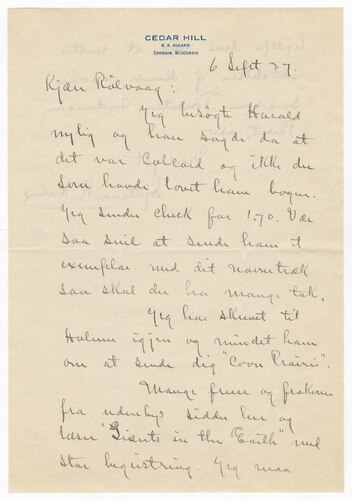 CEDAR HILL
K. R. HOLAND
EPHRAIM, WISCONSIN
6 Sept 27.
Kjære Rölvaag:
Jeg besøgte Harald
nylig og han sagde da at
det var Colcord og ikke du
som havde lovet ham bogen.
Jeg sender check for 1.70. Vær
saa snil at sende ham et
exemplar med dit navnetræk
saa skal du ha mange tak.
Jeg har skrevet til
Holum igjen og mindet ham
om at sende dig "Coon Prairie".
Mange fruer og frøkener
fra udenbys sidder her og
læser "Giants in the Earth" med
stor begeistring. Jeg maa